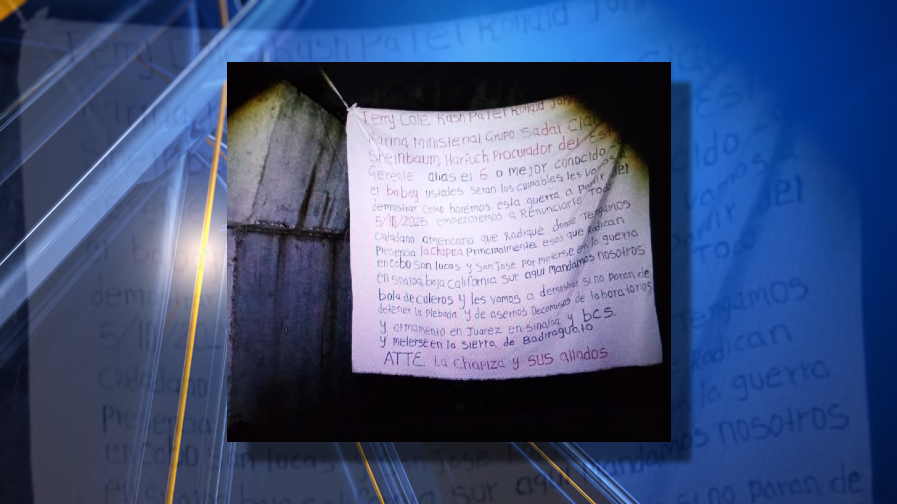 Terry Cole, Kash Patel Ronald John
Marina Ministerial Grupo Sadai Cla
Sheinbaum, Harfuch Procurador del Est
Gerente alias el 6 o mejor conocido
el babay ustedes seran los culpables les vamos a
demostrar como haremos esta guerra a Partir del
5/10/2025 empezaremos a Renunciarle Todo
Ciudadano americano que Radique donde Tengamos
Presencia la Chapiza Principalmente esos que Radican
en Cabo San lucas y San Jose Por meterse en la guerra
en sinaloa baja California sur aqui mandamos nosotros
bola de culeros y les vamos a demostrar si no Paran de
detener la Plebada y de asernos Decomisos de laboratorios
y armamento en Juarez en sinaloa y bCS.
y meterse en la Sierra de Badiraguato
ATTE. La Chapiza y sus aliados